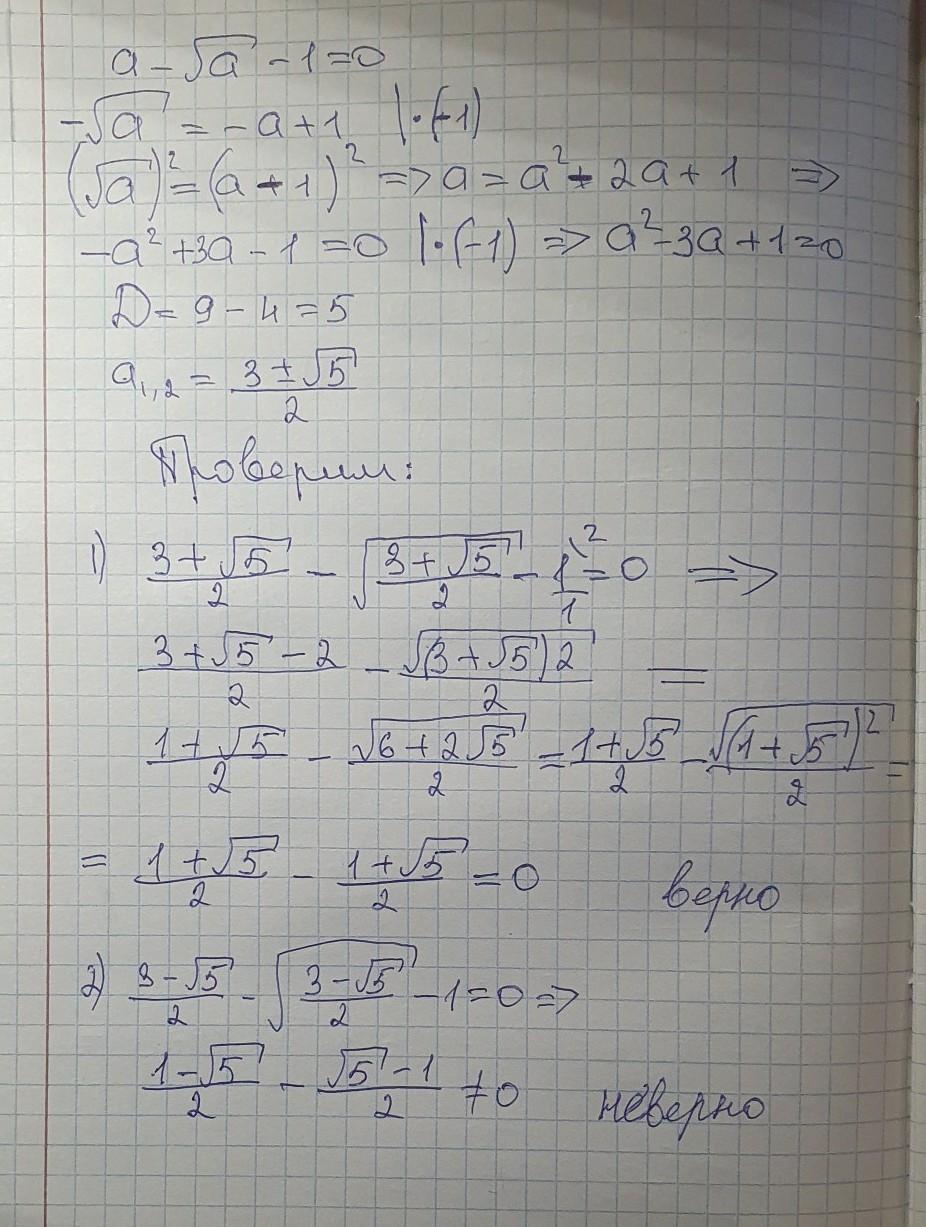 a - √a - 1 = 0
-√a = -a + 1 | · (-1)
(√a)² = (a - 1)² => a = a² - 2a + 1 =>
-a² + 3a - 1 = 0 | · (-1) => a² - 3a + 1 = 0
D = 9 - 4 = 5
a₁,₂ = (3 ± √5)/2
Проверим:
1) (3 + √5)/2 - √((3 + √5)/2) - 1\²/1 = 0 =>
(3 + √5 - 2)/2 - √((3 + √5)2)/2 =
(1 + √5)/2 - √(6 + 2√5)/2 = (1 + √5)/2 - √((1 + √5)²)/2 =
= (1 + √5)/2 - (1 + √5)/2 = 0 верно
2) (3 - √5)/2 - √((3 - √5)/2) - 1 = 0 =>
(1 - √5)/2 - (√5 - 1)/2 ≠ 0 неверно